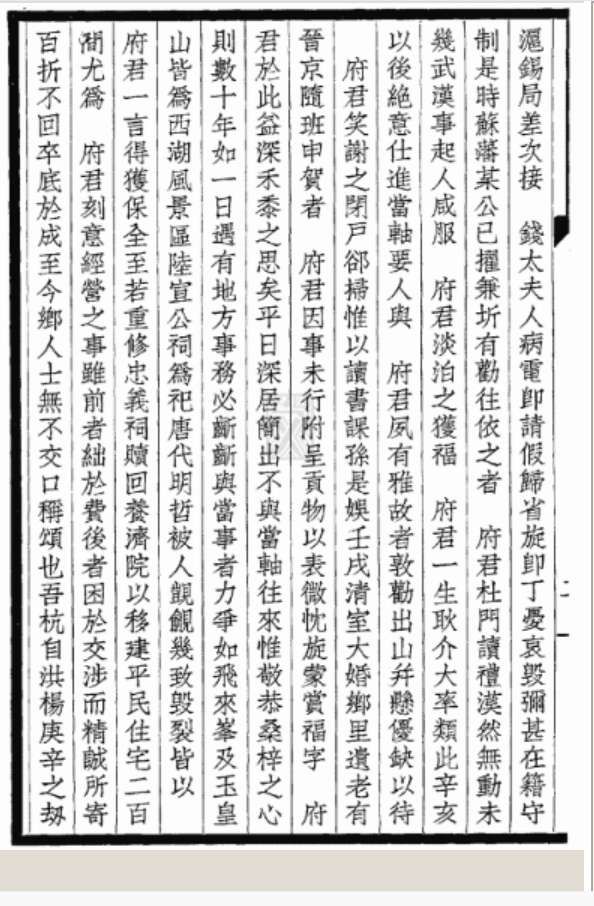 滬錫局差次接　錢太夫人病電卽請假歸省旋卽丁憂哀毀彌甚在籍守
制是時蘇藩某公已擢兼圻有勸往依之者　府君杜門讀禮漠然無動未
幾武漢事起人咸服　府君淡泊之獲福　府君一生耿介大率類此辛亥
以後絶意仕進當軸要人與　府君夙有雅故者敦勸出山幷懸優缺以待
　府君笑謝之閉戸郤掃惟以讀書課孫是娛壬戌清室大婚鄉里遺老有
晉京隨班申賀者　府君因事未行附呈貢物以表微忱旋蒙賞福字　府
君於此益深禾黍之思矣平日深居簡出不與當軸往來惟敬恭桑梓之心
則數十年如一日遇有地方事務必斷斷與當事者力爭如飛來峯及玉皇
山皆爲西湖風景區陸宣公祠爲祀唐代明哲被人覬覦幾致毀裂皆以
府君一言得獲保全至若重修忠義祠贖回養濟院以移建平民住宅二百
間尤爲　府君刻意經營之事雖前者絀於費後者困於交涉而精誠所寄
百折不回卒底於成至今鄉人士無不交口稱頌也吾杭自洪楊庚辛之劫
二